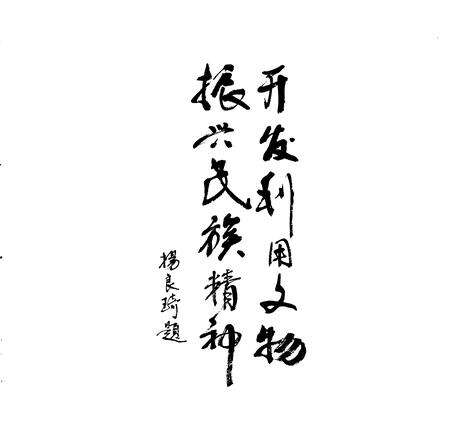 开发利用文物
振兴民族精神
杨良琦题